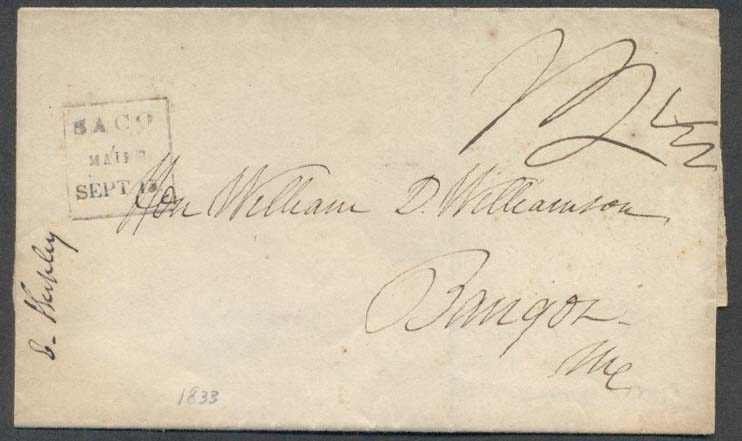 SACO
MAINE
SEPT 13
Hon William D. Williamson
Bangor
Me
1833